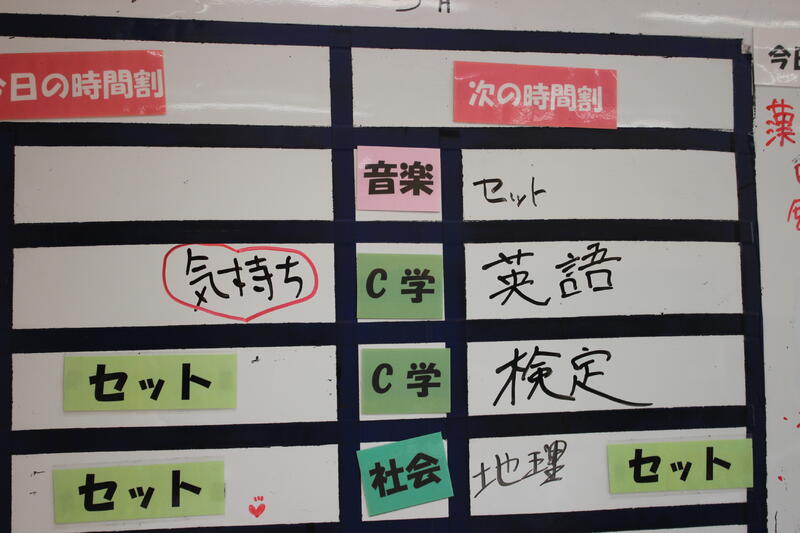 今日の時間割
次の時間割
今日
音楽
セット
気持ち
C学
英語
セット
C学
検定
セット
社会
地理
セット